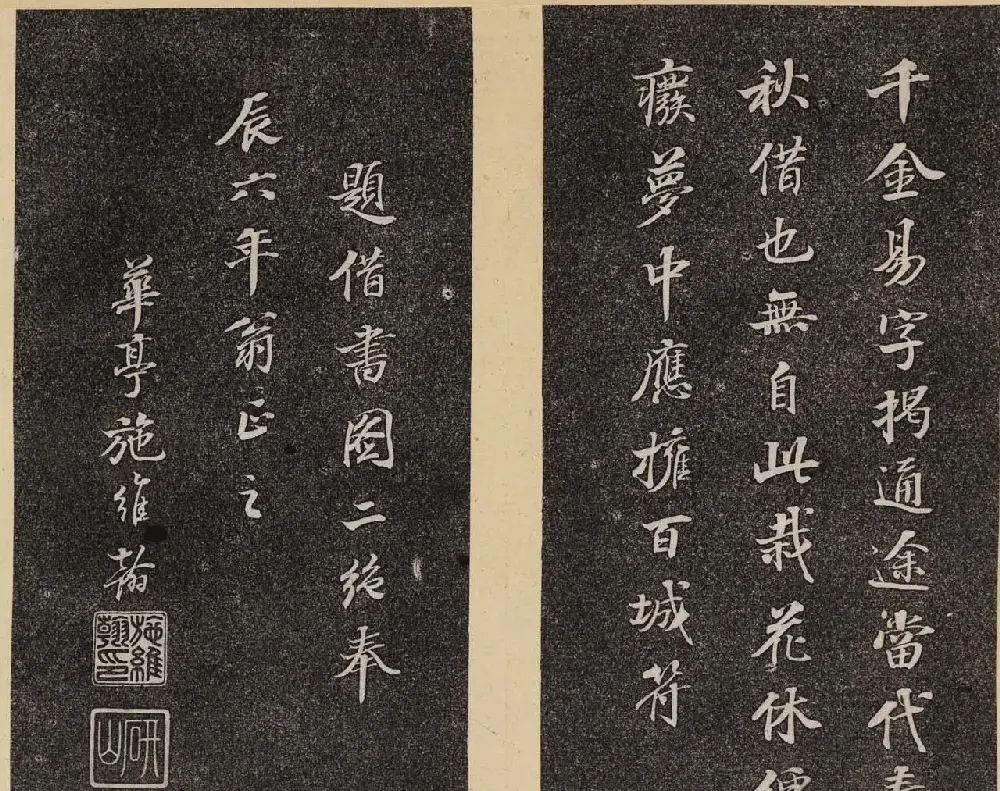 千金易字揭通途當代春
秋借也無自此栽花休便
癈夢中應擁百城符
題借書圖二絕奉
辰六年翁正之
華亭施維翰
施維翰印
研山